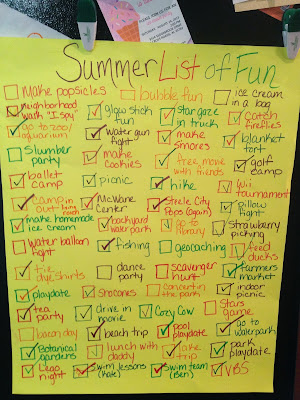 Summer List of Fun
Make popsicles
Neighborhood walk "I Spy"
go to zoo/aquarium
Slumber party
ballet camp
camp in our living room
make homemade ice cream
water balloon fight
tie dye shirts
playdate
tea party
bacon day
Botanical gardens
Lego night
bubble fun
glow stick fun
Water gun fight
make cookies
picnic
McWane Center
backyard waterpark
fishing
dance party
Snocones
drive in movie
beach trip
lunch with daddy
Swim lessons (Kate)
Star gaze in truck
make smores
free movie with friends
hike
Steele City Pops (again)
go to library
geocaching
Scavenger hunt
concert in the park
Cozy Cow
pool playdate
lake trip
Swim team (Ben)
ice cream in a bag
Catch fireflies
blanket fort
golf camp
Wii tournament
pillow fight
Strawberry picking
feed ducks
farmers market
indoor picnic
Stars game
go to waterpark
park playdate
VBS